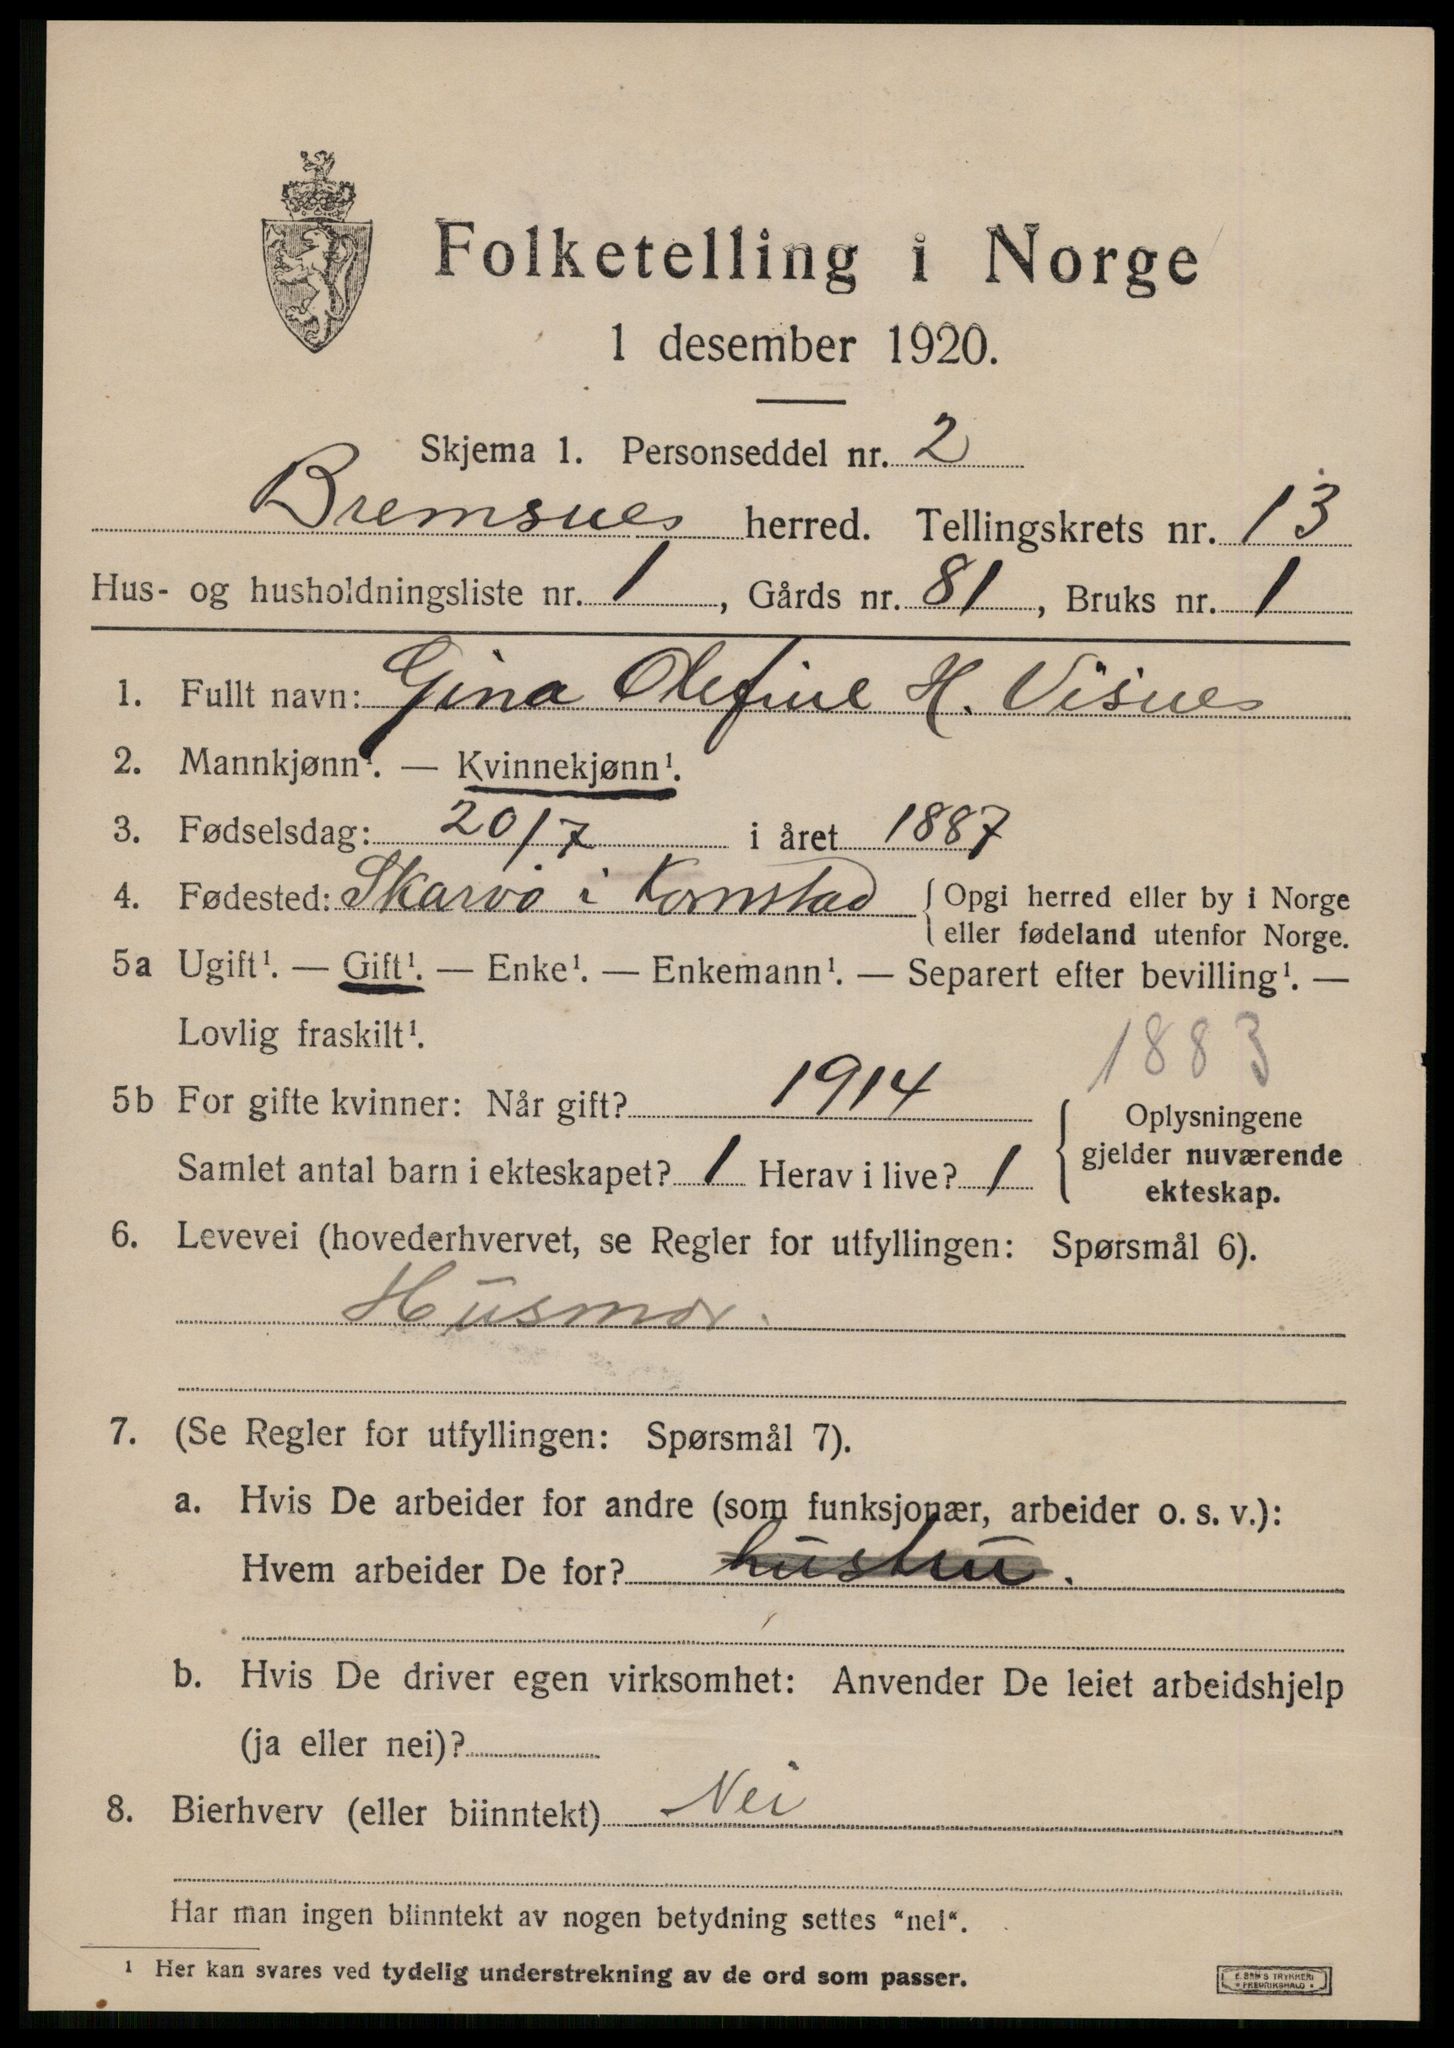 Folketelling i Norge
1 desember 1920.
Skjema 1. Personseddel nr. 2
Bremsnes herred. Tellingskrets nr. 13
Hus- og husholdningsliste nr. 1, Gårds nr. 81, Bruks nr. 1
1. Fullt navn: Gina Olefine H. Visnes
2. Mannkjønn¹. — Kvinnekjønn¹.
3. Fødselsdag: 20/7 i året 1887
4. Fødested: Skarvø i Kornstad { Opgi herred eller by i Norge
eller fødeland utenfor Norge.
5a Ugift¹. — Gift¹. — Enke¹. — Enkemann¹. — Separert efter bevilling¹. —
Lovlig fraskilt¹.
1883
5b For gifte kvinner: Når gift? 1914
Samlet antal barn i ekteskapet? 1 Herav i live? 1
{ Oplysningene
gjelder nuværende
ekteskap.
6. Levevei (hovederhvervet, se Regler for utfyllingen: Spørsmål 6).
Husmor.
7. (Se Regler for utfyllingen: Spørsmål 7).
a. Hvis De arbeider for andre (som funksjonær, arbeider o. s. v.):
Hvem arbeider De for? hustru.
b. Hvis De driver egen virksomhet: Anvender De leiet arbeidshjelp
(ja eller nei)?
8. Bierhverv (eller biinntekt) Nei
Har man ingen biinntekt av nogen betydning settes “nei“.
¹ Her kan svares ved tydelig understrekning av de ord som passer.
E. SEM'S TRYKKERI
• FREDRIKSHALD •